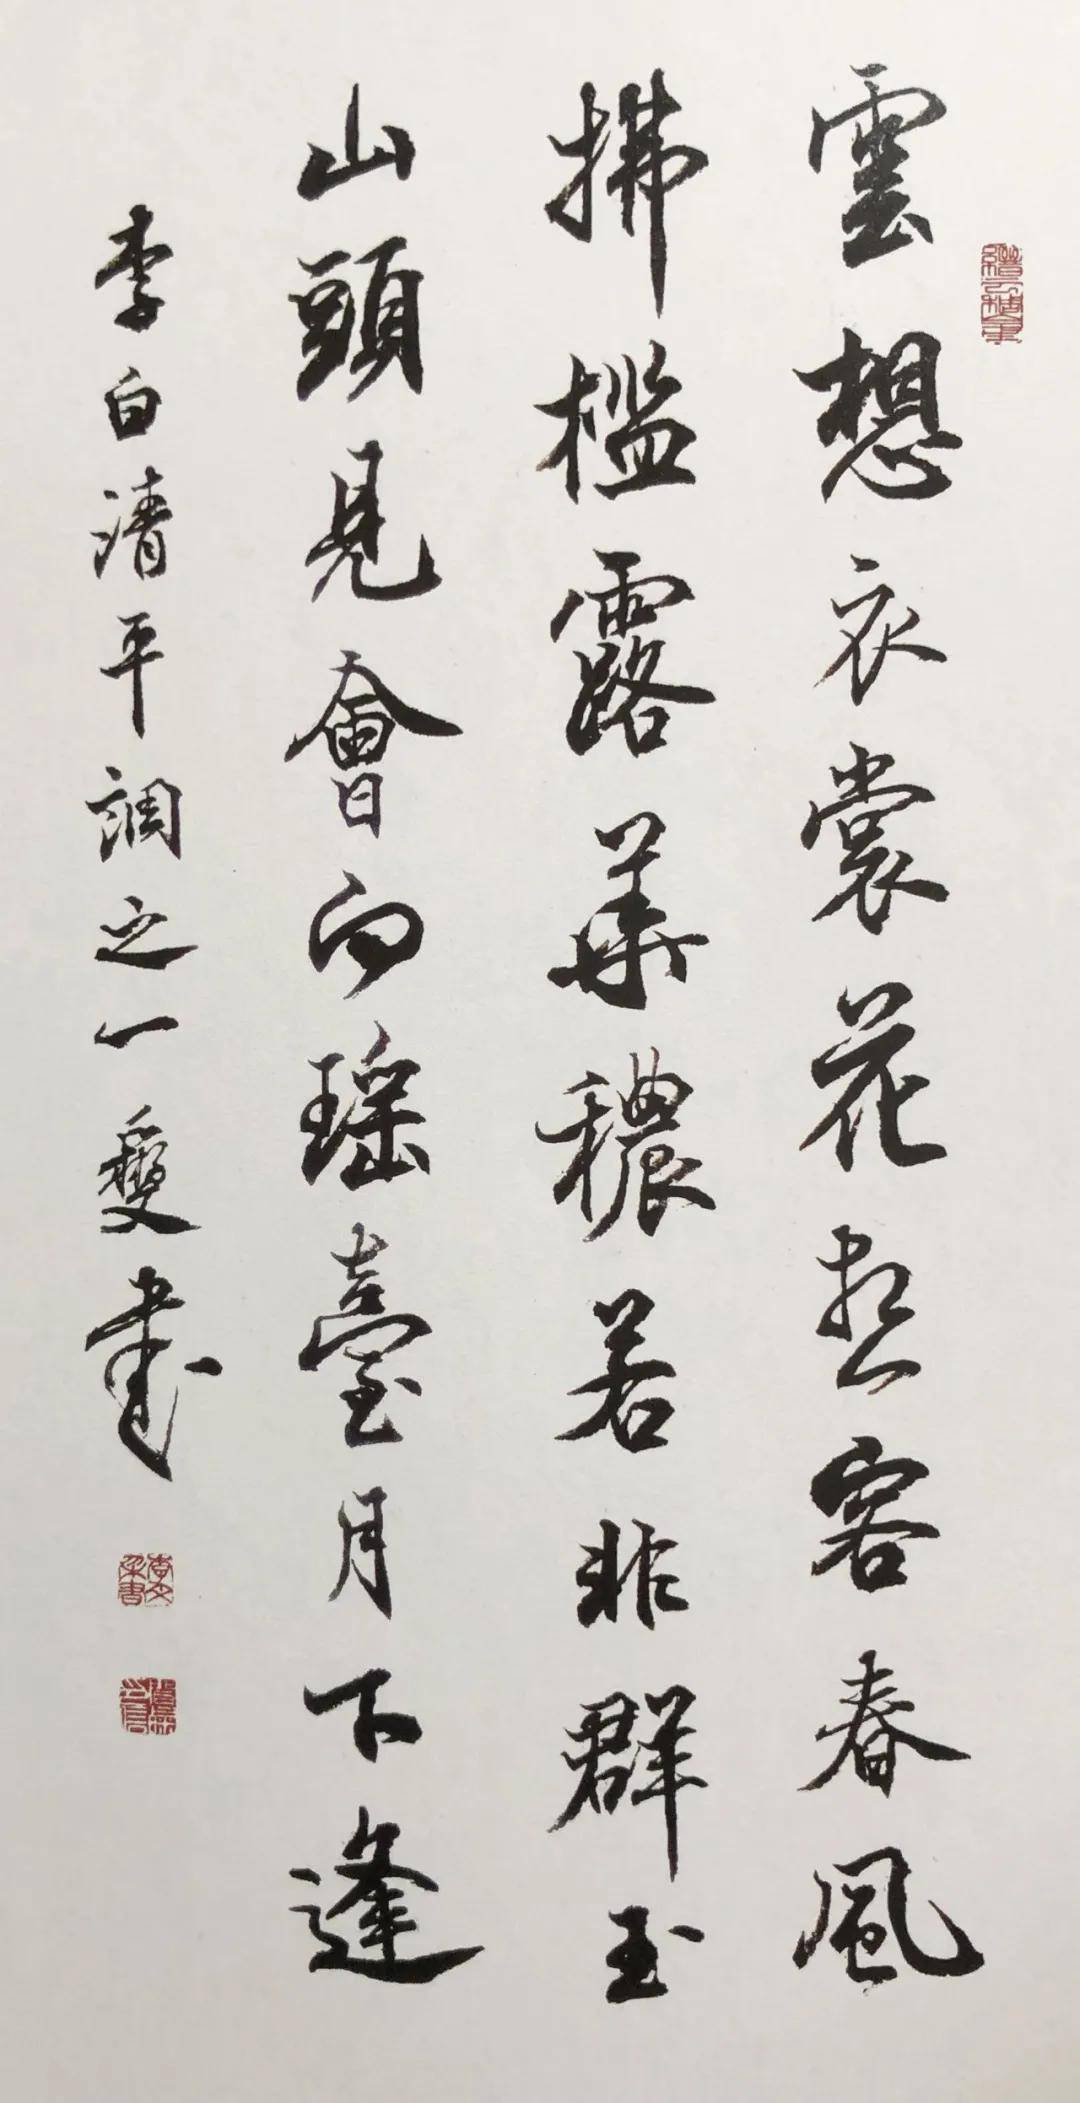 雲想衣裳花想容春風
拂檻露華穠若非群玉
山頭見會向瑤臺月下逢
李白清平調之一
書